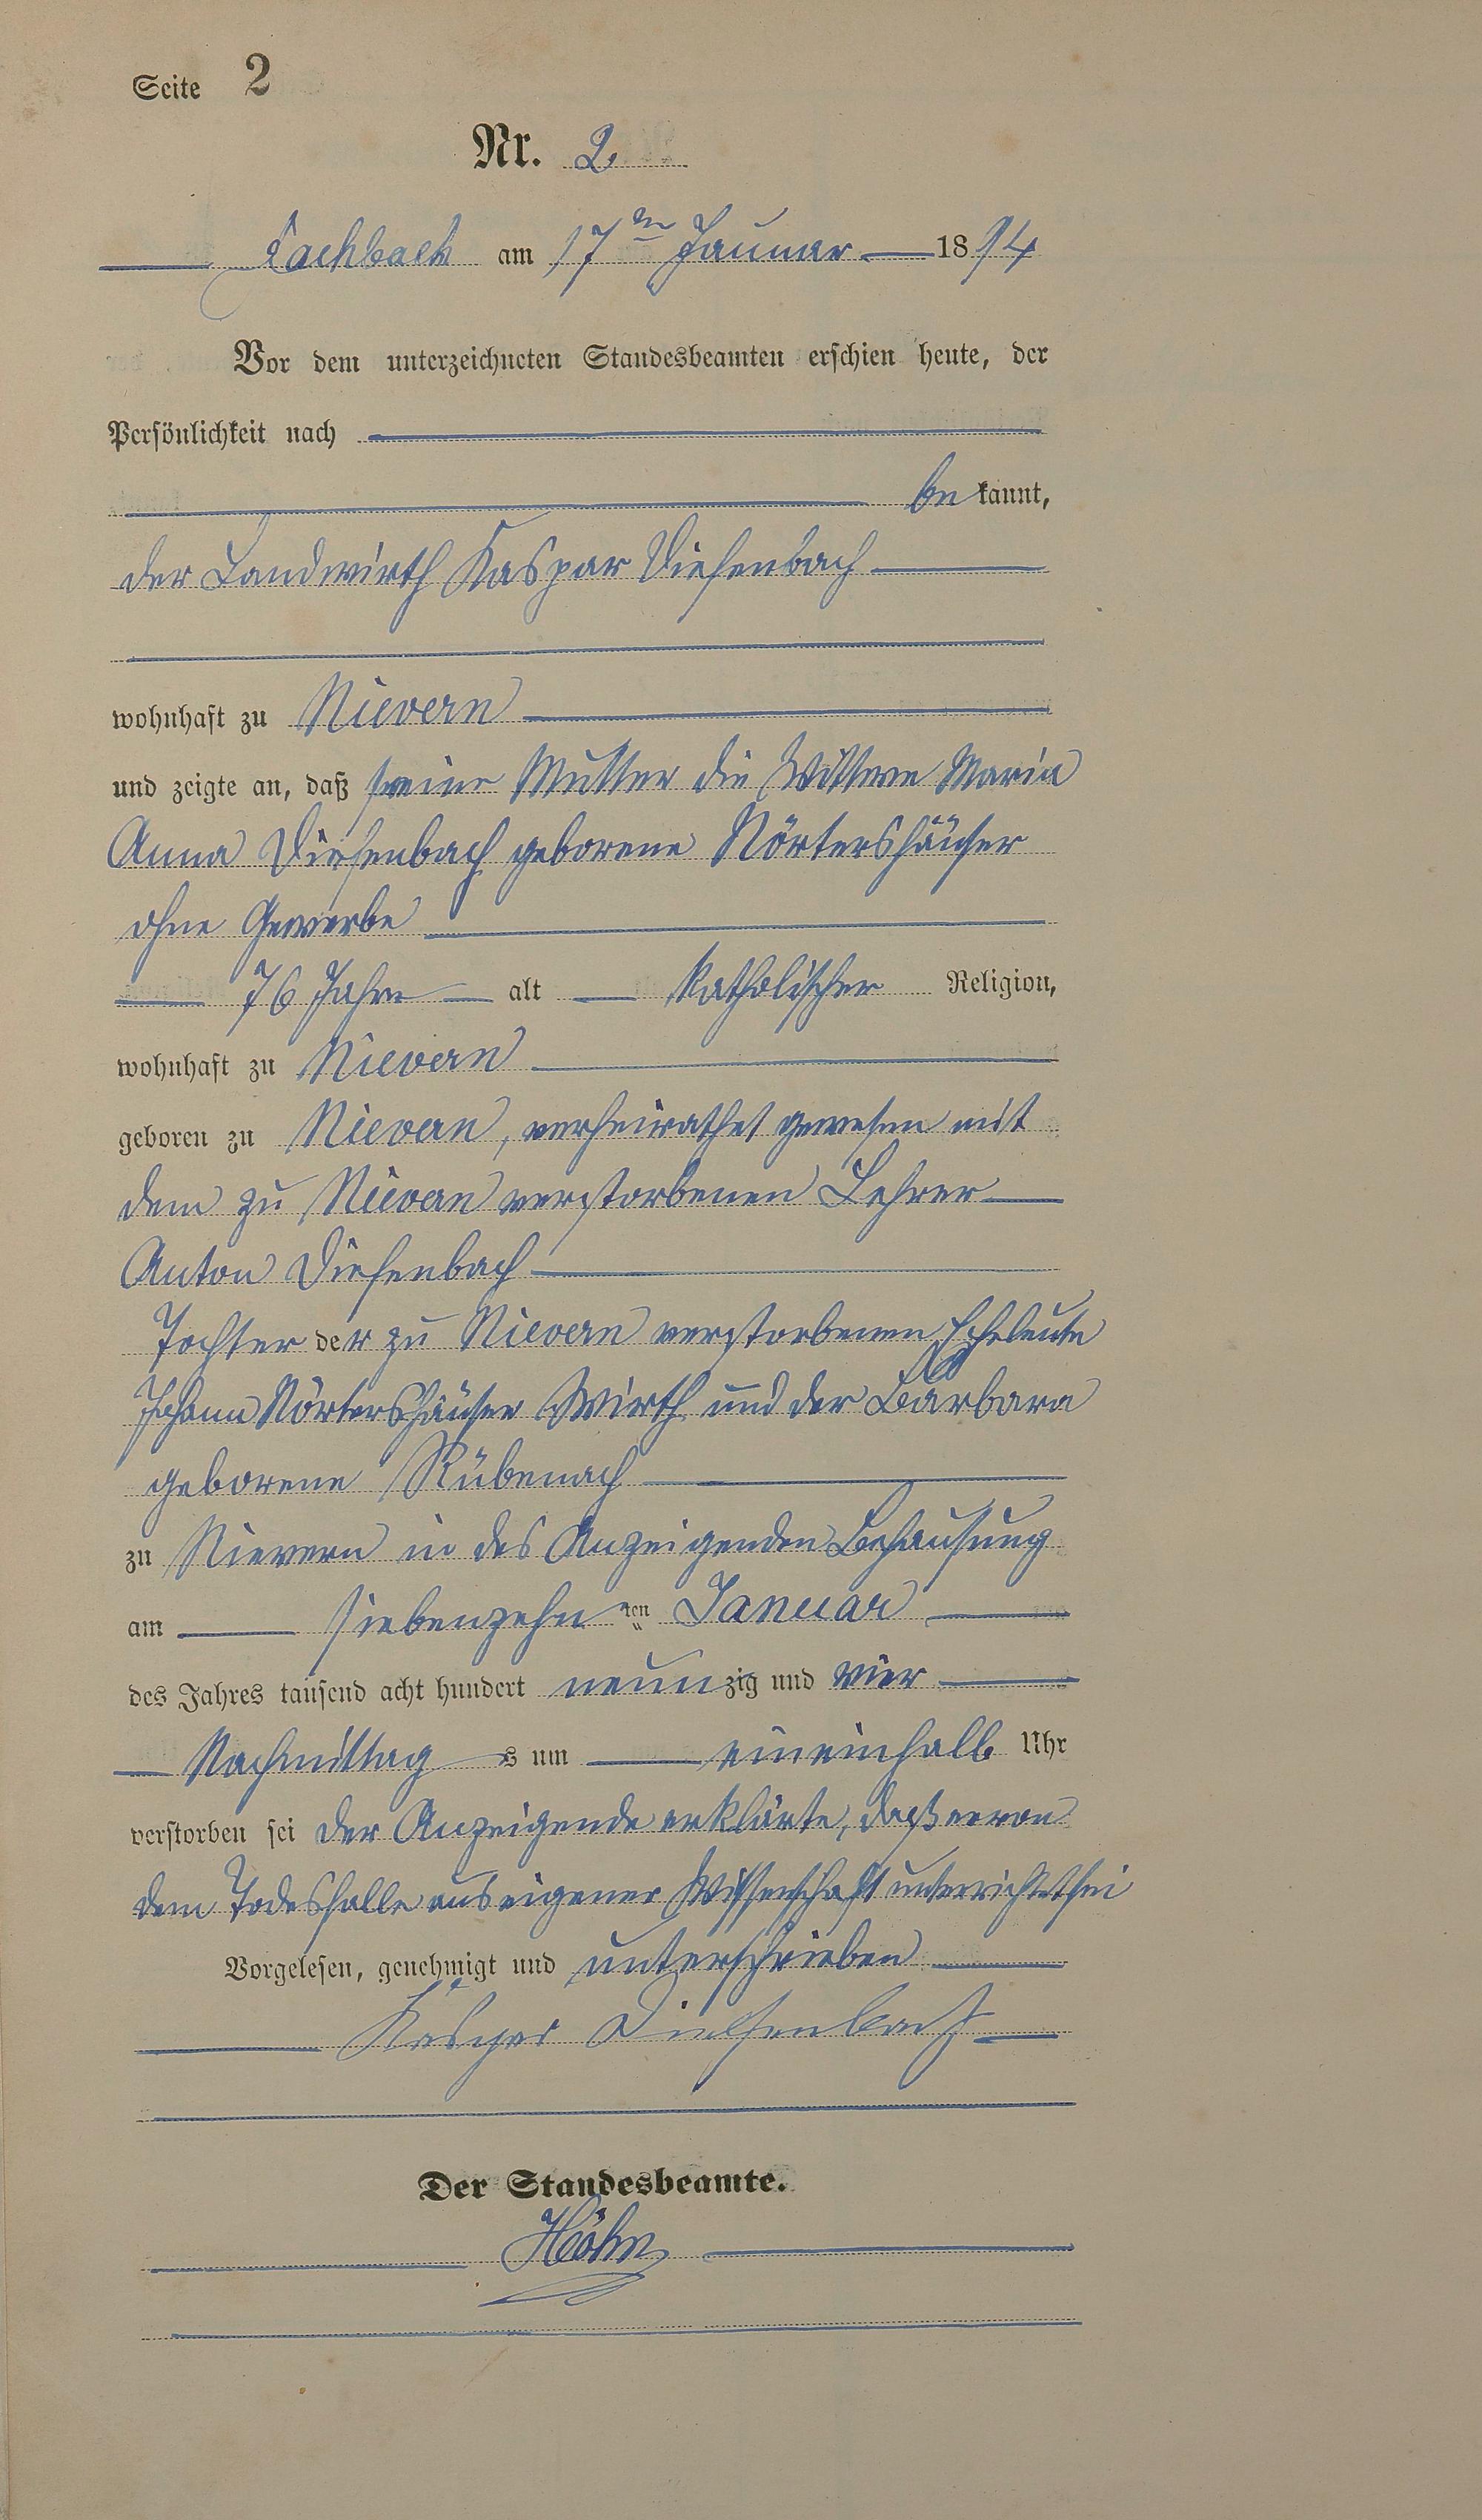 Seite 2
Nr. 2.
Fachbach am 17ten Januar 1894
Vor dem unterzeichneten Standesbeamten erschien heute, der
Persönlichkeit nach
bekannt,
der Landwirth Kaspar Diefenbach
wohnhaft zu Nievern
und zeigte an, daß seine Mutter die Wittwe Maria
Anna Diefenbach geborene Nörtershäuser
ohne Gewerbe
76 Jahre alt katholischer Religion,
wohnhaft zu Nievern
geboren zu Nievern, verheirathet gewesen mit
dem zu Nievern verstorbenen Lehrer
Anton Diefenbach
Tochter der zu Nievern verstorbenen Eheleute
Johann Nörtershäuser Wirth und der Barbara
geborene Rübenach
zu Nievern in des Anzeigenden Behausung
am siebenzehnten Januar
des Jahres tausend acht hundert neunzig und vier
Nachmittags um eineinhalb Uhr
verstorben sei der Anzeigende erklärte, daß er von
dem Todesfalle aus eigener Wissenschaft unterrichtet sei
Vorgelesen, genehmigt und unterschrieben
Kaspar Diefenbach
Der Standesbeamte.
Höhn